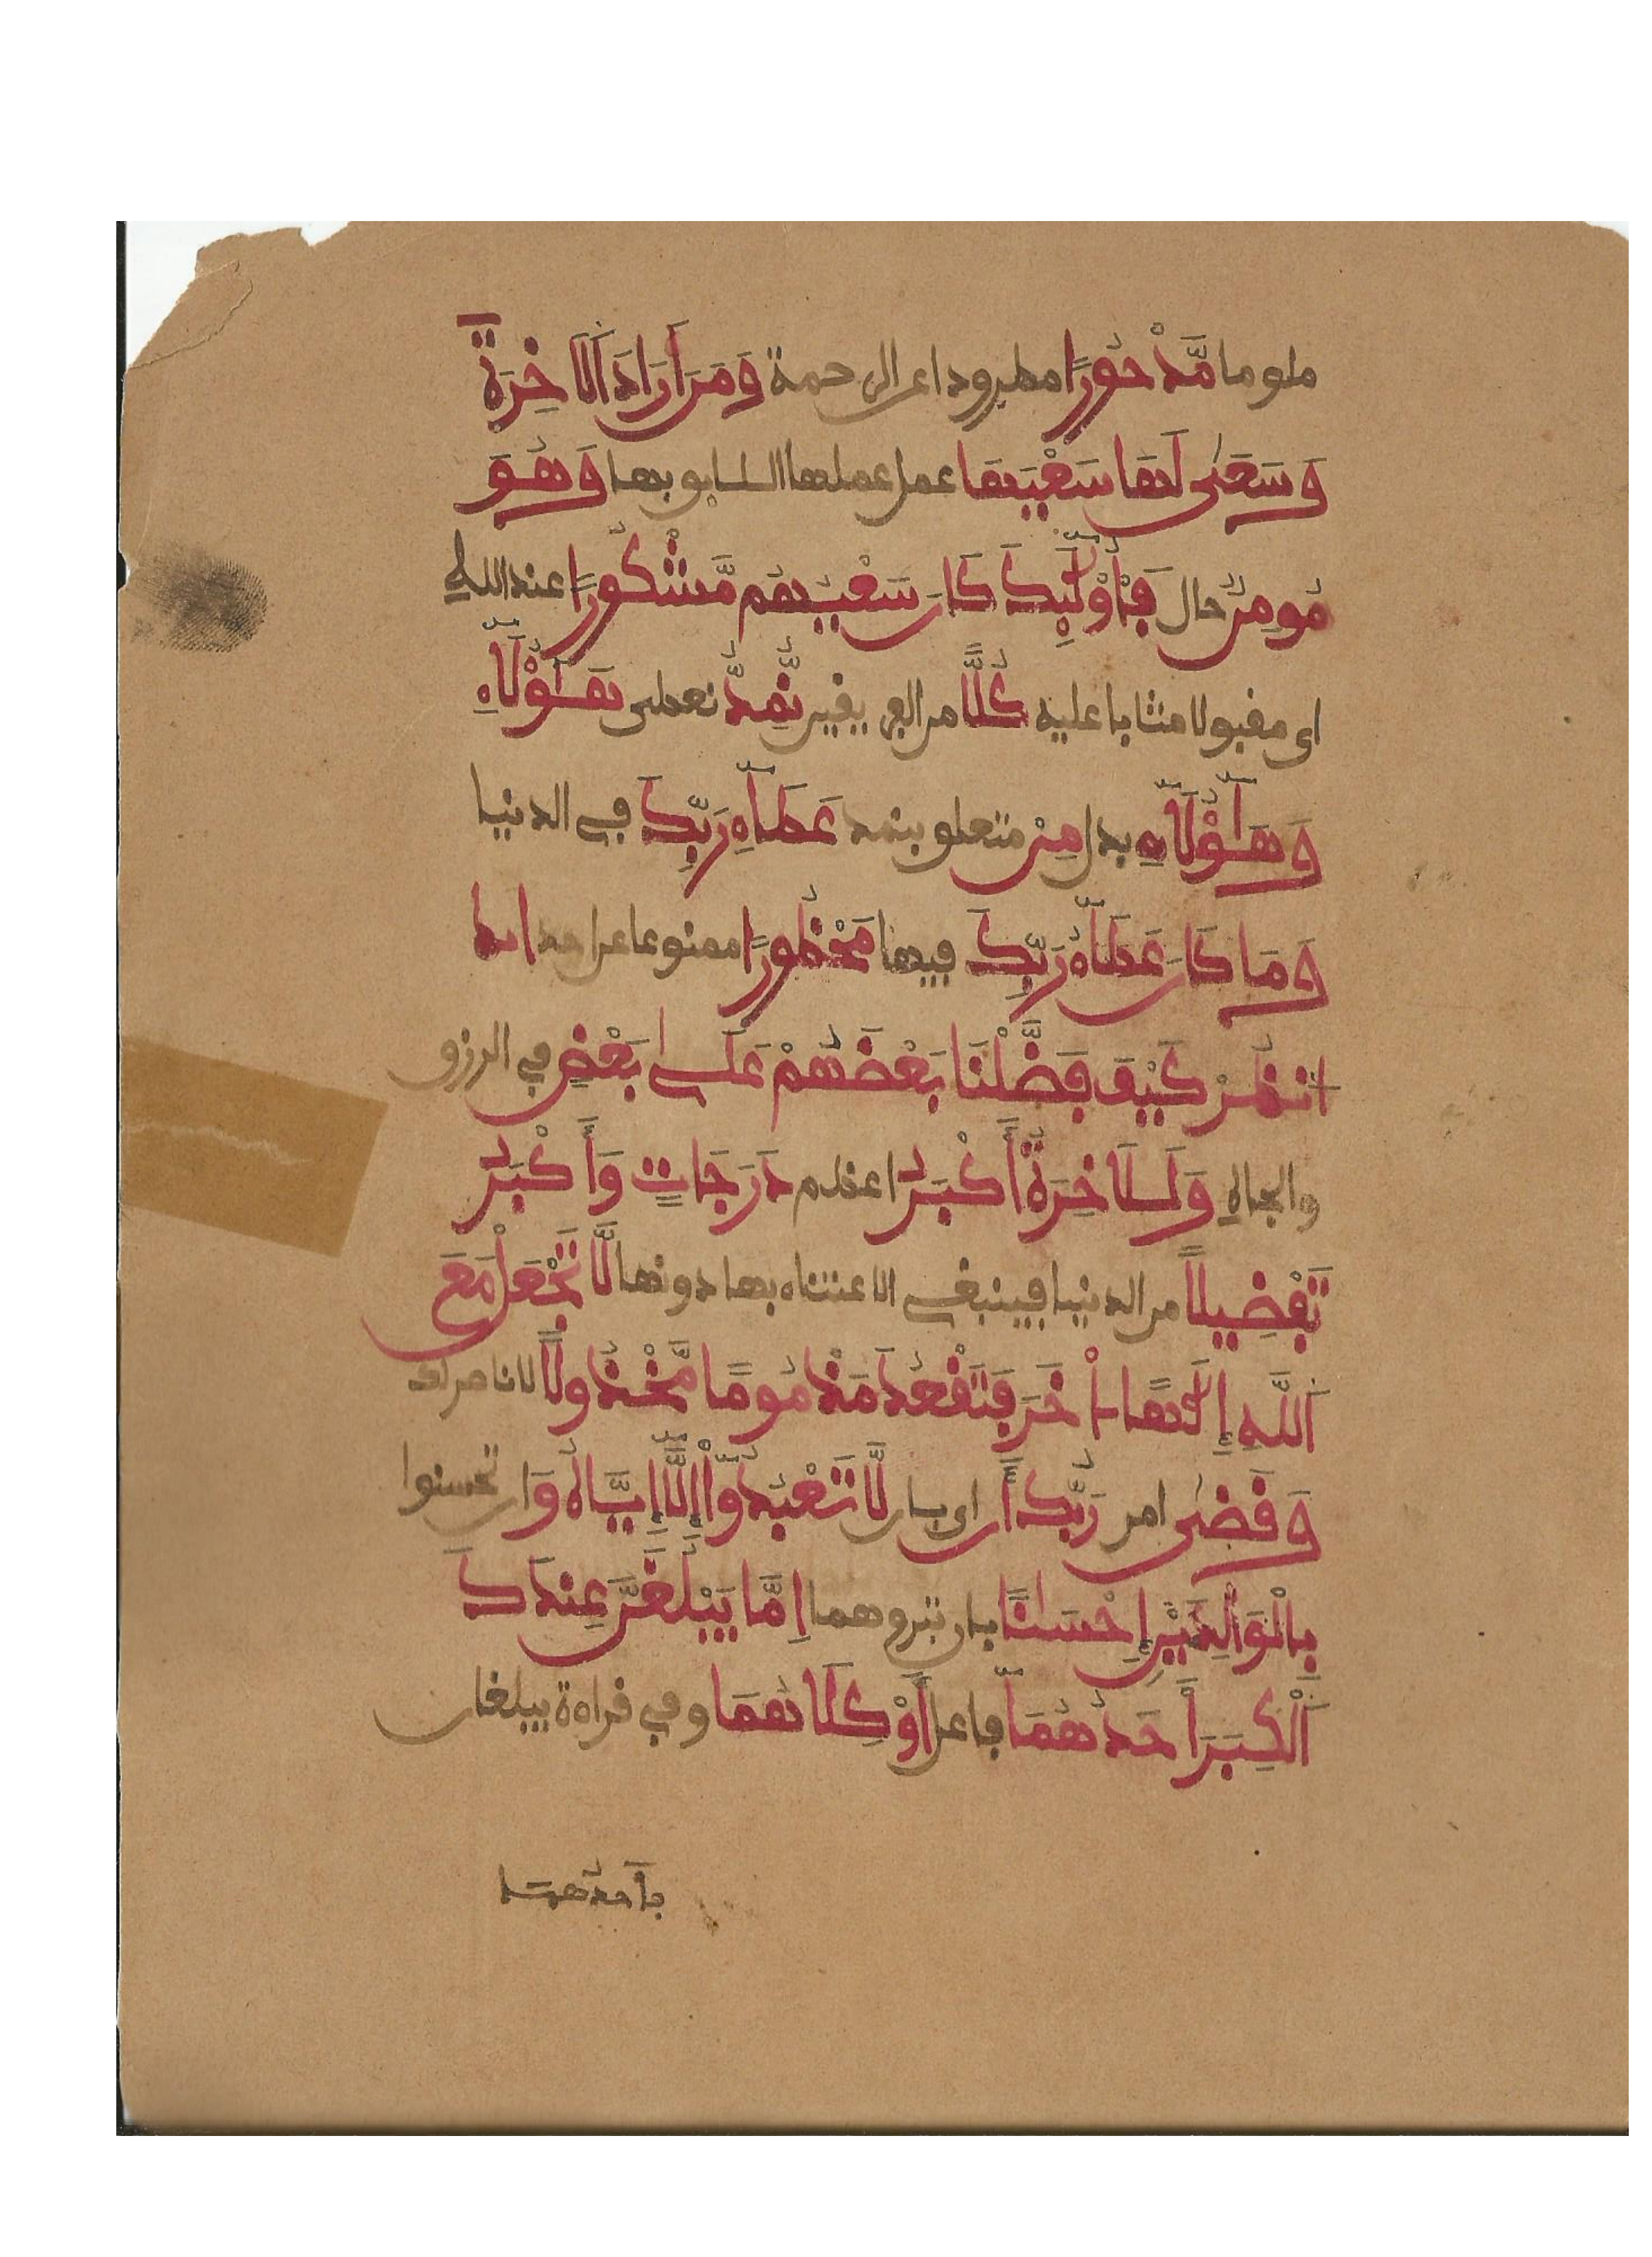 ملوما مَّدْحُورًا مطرودا عن الرحمة وَمَنَ اَرَادَ اَلَاخِرَةَ
وَسَعَىٰ لَهَا سَعْيَهَا عمل عملها اللايق بها وَهُوَ
مُومِنٌ حال فَأُوْلَٰٓئِكَ كَانَ سَعْيُهُم مَّشْكُورًا عند الله
اى مقبولا مثابا عليه كُلًّا من الفريقين نُّمِدُّ نعطى هَٰٓؤُلَآءِ
وَهَٰٓؤُلَآءِ بدل مِنْ متعلق بنمد عَطَآءِ رَبِّكَ في الدنيا
وَمَا كَانَ عَطَآءُ رَبِّكَ فيها مَحْظُورًا ممنوعا عن احد
انظُرْ كَيْفَ فَضَّلْنَا بَعْضَهُمْ عَلَىٰ بَعْضٍ في الرزق
والجاه وَلَلَاخِرَةُ أَكْبَرُ اعظم دَرَجَٰتٍ وَأَكْبَرُ
تَفْضِيلًا من الدنيا فينبغى الاعتناء بها دونها لَّا تَجْعَلْ مَعَ
اَللَّهِ إِلَٰهًا اٰخَرَ فَتَقْعُدَ مَذْمُومًا مَّخْذُولًا لا ناصر لك
وَقَضَىٰ امر رَبُّكَ أَن اى بان لَّا تَعْبُدُوٓاْ إِلَّآ إِيَّاهُ وَان تحسنوا
بِالْوَٰلِدَيْنِ إِحْسَٰنًا بان تبروهما اِمَّا يَبْلُغَنَّ عِندَكَ
اَلْكِبَرَ أَحَدُهُمَآ فاعل أَوْ كِلَاهُمَا وفي قراءة يبلغان
فأحدهما